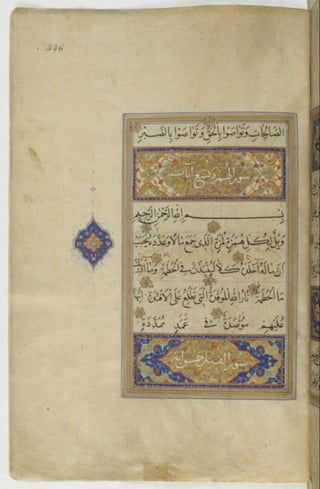 446
الصَّالِحَاتِ وَتَوَاصَوْا بِالْحَقِّ وَتَوَاصَوْا بِالصَّبْرِ
سورة الهمزة تسع آيات
بِسْمِ اللهِ الرَّحْمٰنِ الرَّحِيمِ
وَيْلٌ لِكُلِّ هُمَزَةٍ لُمَزَةٍ الَّذِي جَمَعَ مَالًا وَعَدَّدَهُ يَحْسَبُ
أَنَّ مَالَهُ أَخْلَدَهُ كَلَّا لَيُنْبَذَنَّ فِي الْحُطَمَةِ وَمَا أَدْرٰيكَ
مَا الْحُطَمَةُ نَارُ اللهِ الْمُوقَدَةُ الَّتِي تَطَّلِعُ عَلَى الْأَفْئِدَةِ إِنَّهَا
عَلَيْهِمْ مُؤْصَدَةٌ فِي عَمَدٍ مُمَدَّدَةٍ
سورة الفيل خمس آيات